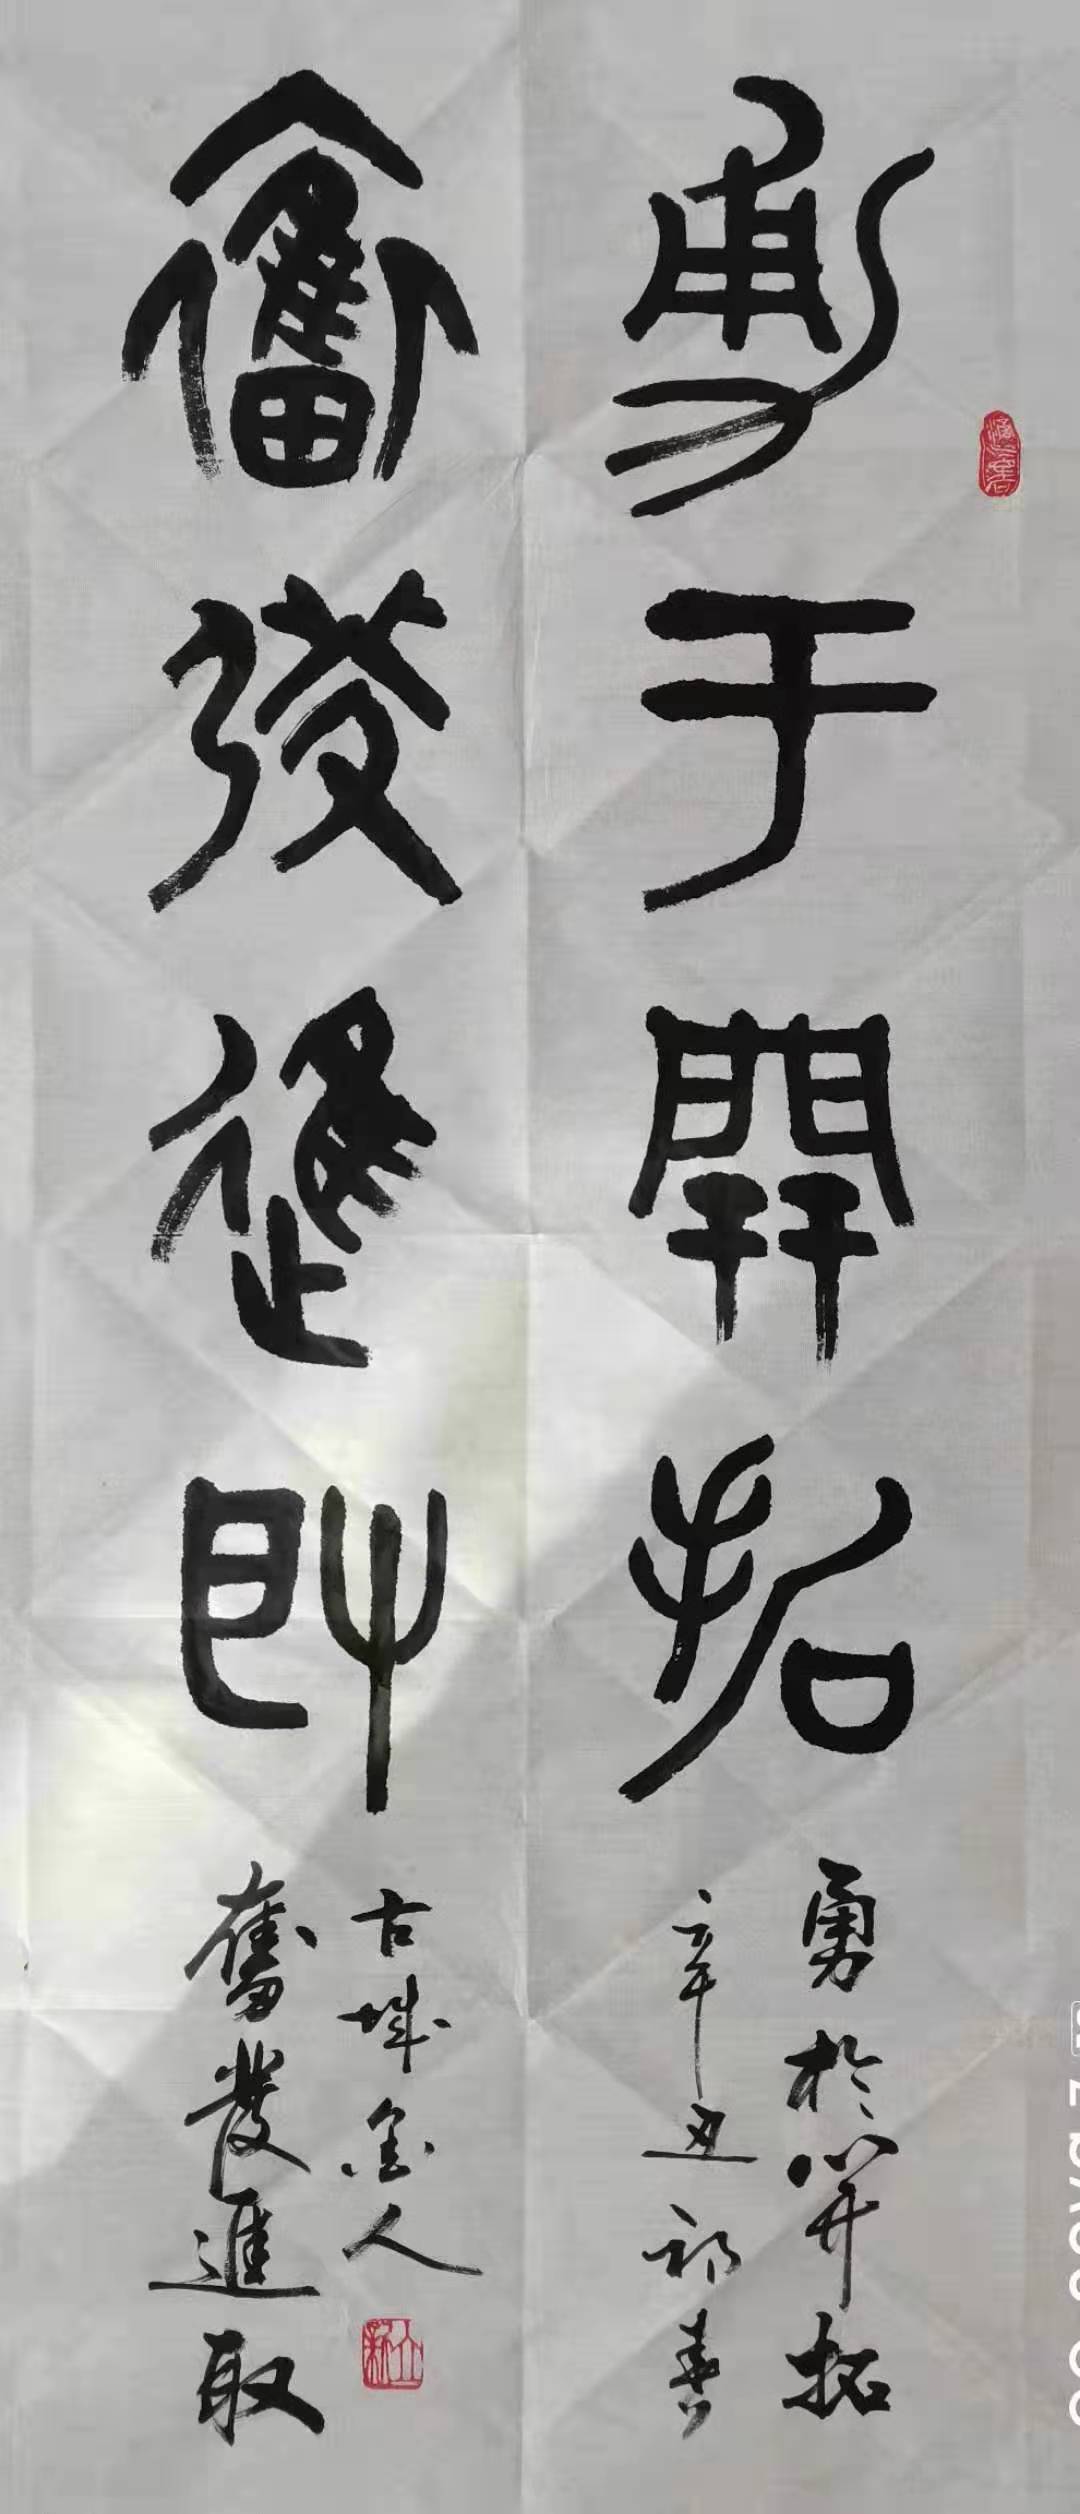 勇于開拓
奮發進取
勇於開拓
辛丑初春
古城金人
奮發進取